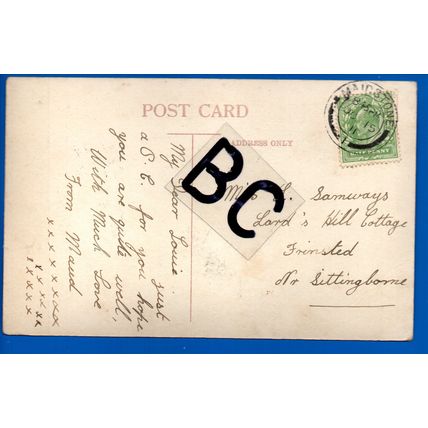 POST CARD
ADDRESS ONLY
MAIDSTONE
15
HALFPENNY
BC
My Dear Louie just
a P.C. for you hope
you are quite well,
With Much Love
From Maud
x x x x x x x x
x x x x x x
Miss L. Samways
Lard's Hill Cottage
Frinsted
Nr Sittingborne